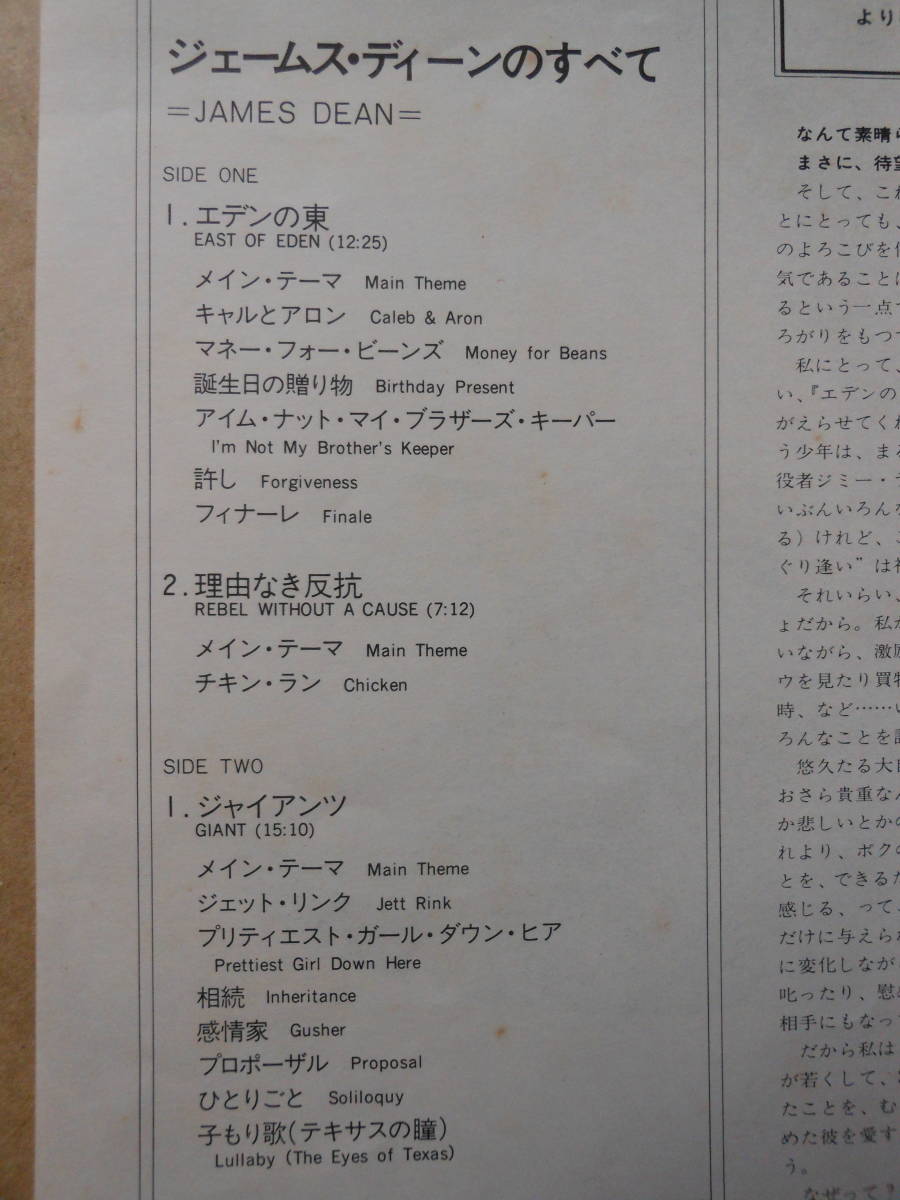 ジェームス・ディーンのすべて
=JAMES DEAN=
SIDE ONE
1.エデンの東
EAST OF EDEN (12:25)
メイン・テーマ Main Theme
キャルとアロン Caleb & Aron
マネー・フォー・ビーンズ Money for Beans
誕生日の贈り物 Birthday Present
アイム・ナット・マイ・ブラザーズ・キーパー
I'm Not My Brother's Keeper
許し Forgiveness
フィナーレ Finale
2.理由なき反抗
REBEL WITHOUT A CAUSE (7:12)
メイン・テーマ Main Theme
チキン・ラン Chicken
SIDE TWO
1.ジャイアンツ
GIANT (15:10)
メイン・テーマ Main Theme
ジェット・リンク Jett Rink
プリティエスト・ガール・ダウン・ヒア
Prettiest Girl Down Here
相続 Inheritance
感情家 Gusher
プロポーザル Proposal
ひとりごと Soliloquy
子もり歌(テキサスの瞳)
Lullaby (The Eyes of Texas)
より
なんて素晴
まさに、待望
そして、これ
とにとっても、
のよろこびを
気であることに
るという一点で
ろがりをもつ
私にとって、
い、『エデンの
がえらせてくれ
う少年は、まる
役者ジミー・
いぶんいろんな
る)けれど、こ
ぐり逢い"は
それいらい、
ょだから。私が
いながら、激
ウを見たり買物
時、など……い
ろんなことを
悠久たる大自
おさら貴重なん
か悲しいとかの
れより、ボクの
とを、できるだ
感じる、って、
だけに与えられ
に変化しなが
叱ったり、慰め
相手にもなっ
だから私は
が若くして、
たことを、む
めた彼を愛す
う。
なぜって?